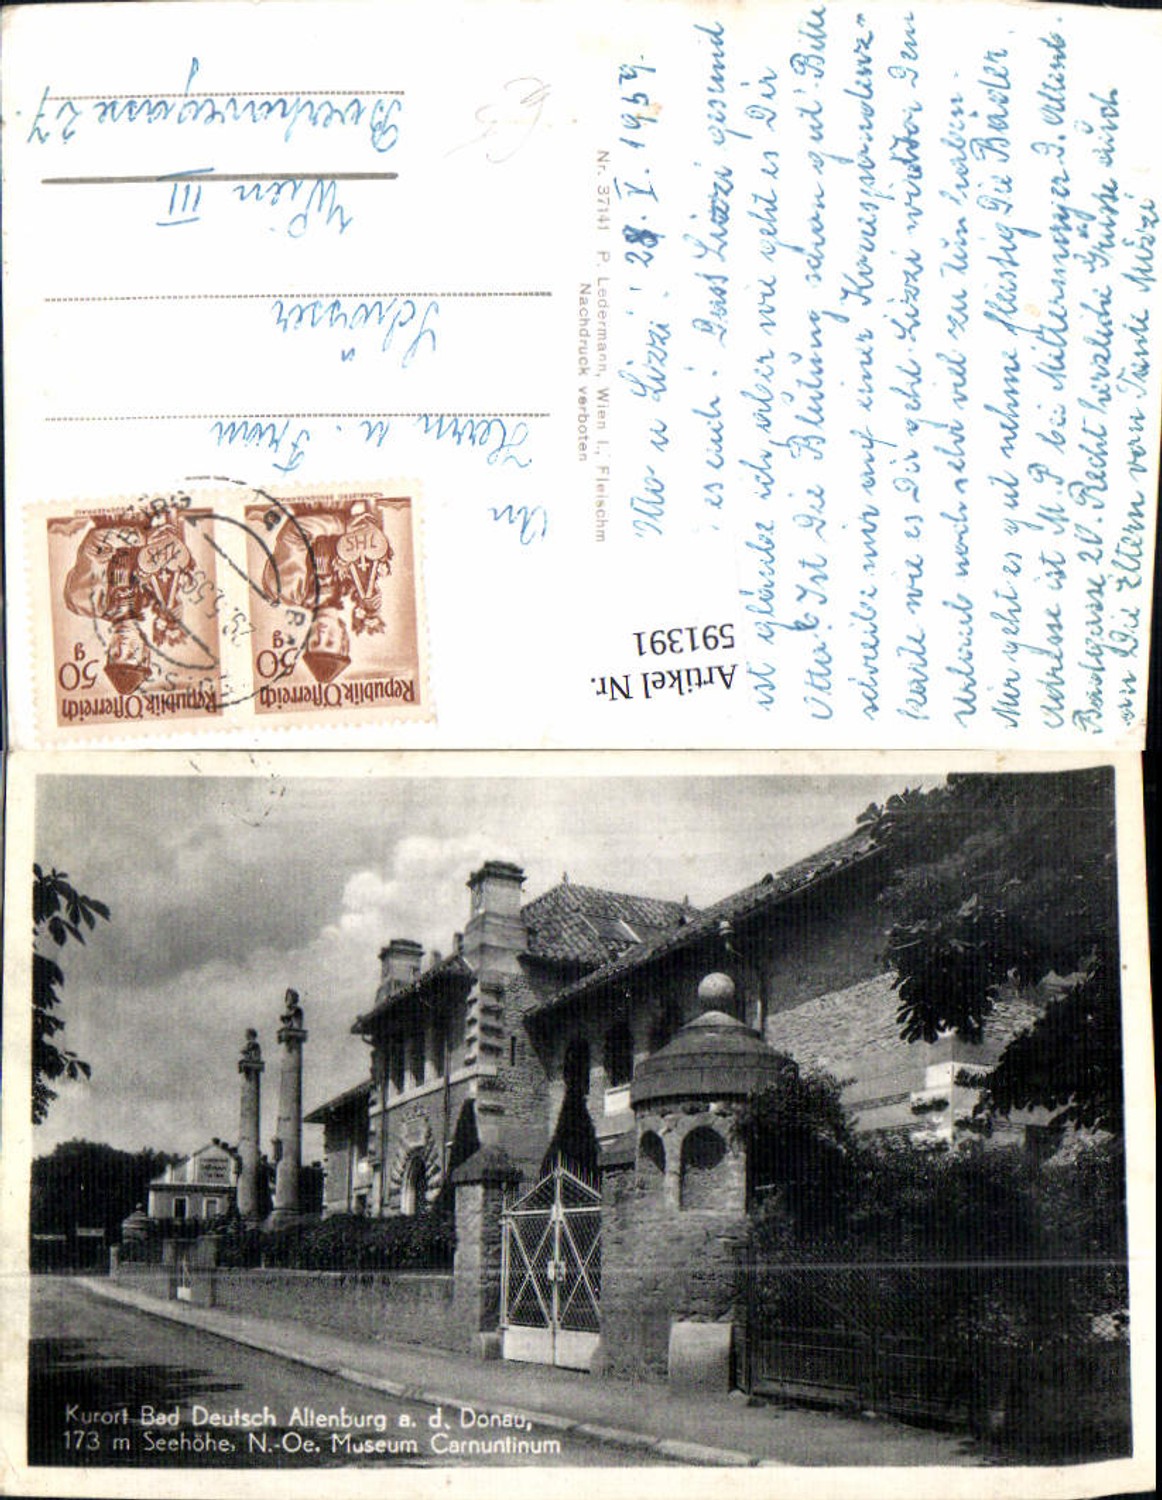 28. V. 1959.
Otto u Lizzi!
ist glaube ich, aber wie geht es Dir
Otto? Ist die Blutung schon gut? Bitte
schreibe mir auf einer Korrespondenz-
karte wie es Dir geht. Lizzi wird vor dem
Urlaub noch sehr viel zu tun haben.
Mir geht es gut nehme fleißig die Bäder.
Adresse ist M. P bei Mittermayer D. Altenb.
Badgasse 20. Recht herzliche Grüsse auch
an die Eltern von Tante Mizzi
An
Herrn u. Frau
Schosser
Wien III
Boerhavegasse 27
Nr. 37141 P. Ledermann, Wien I., Fleischm
Nachdruck verboten
Republik Österreich
50 g
Republik Österreich
50 g
Artikel Nr.
591391
Kurort Bad Deutsch Altenburg a. d. Donau,
173 m Seehöhe, N.-Oe. Museum Carnuntinum